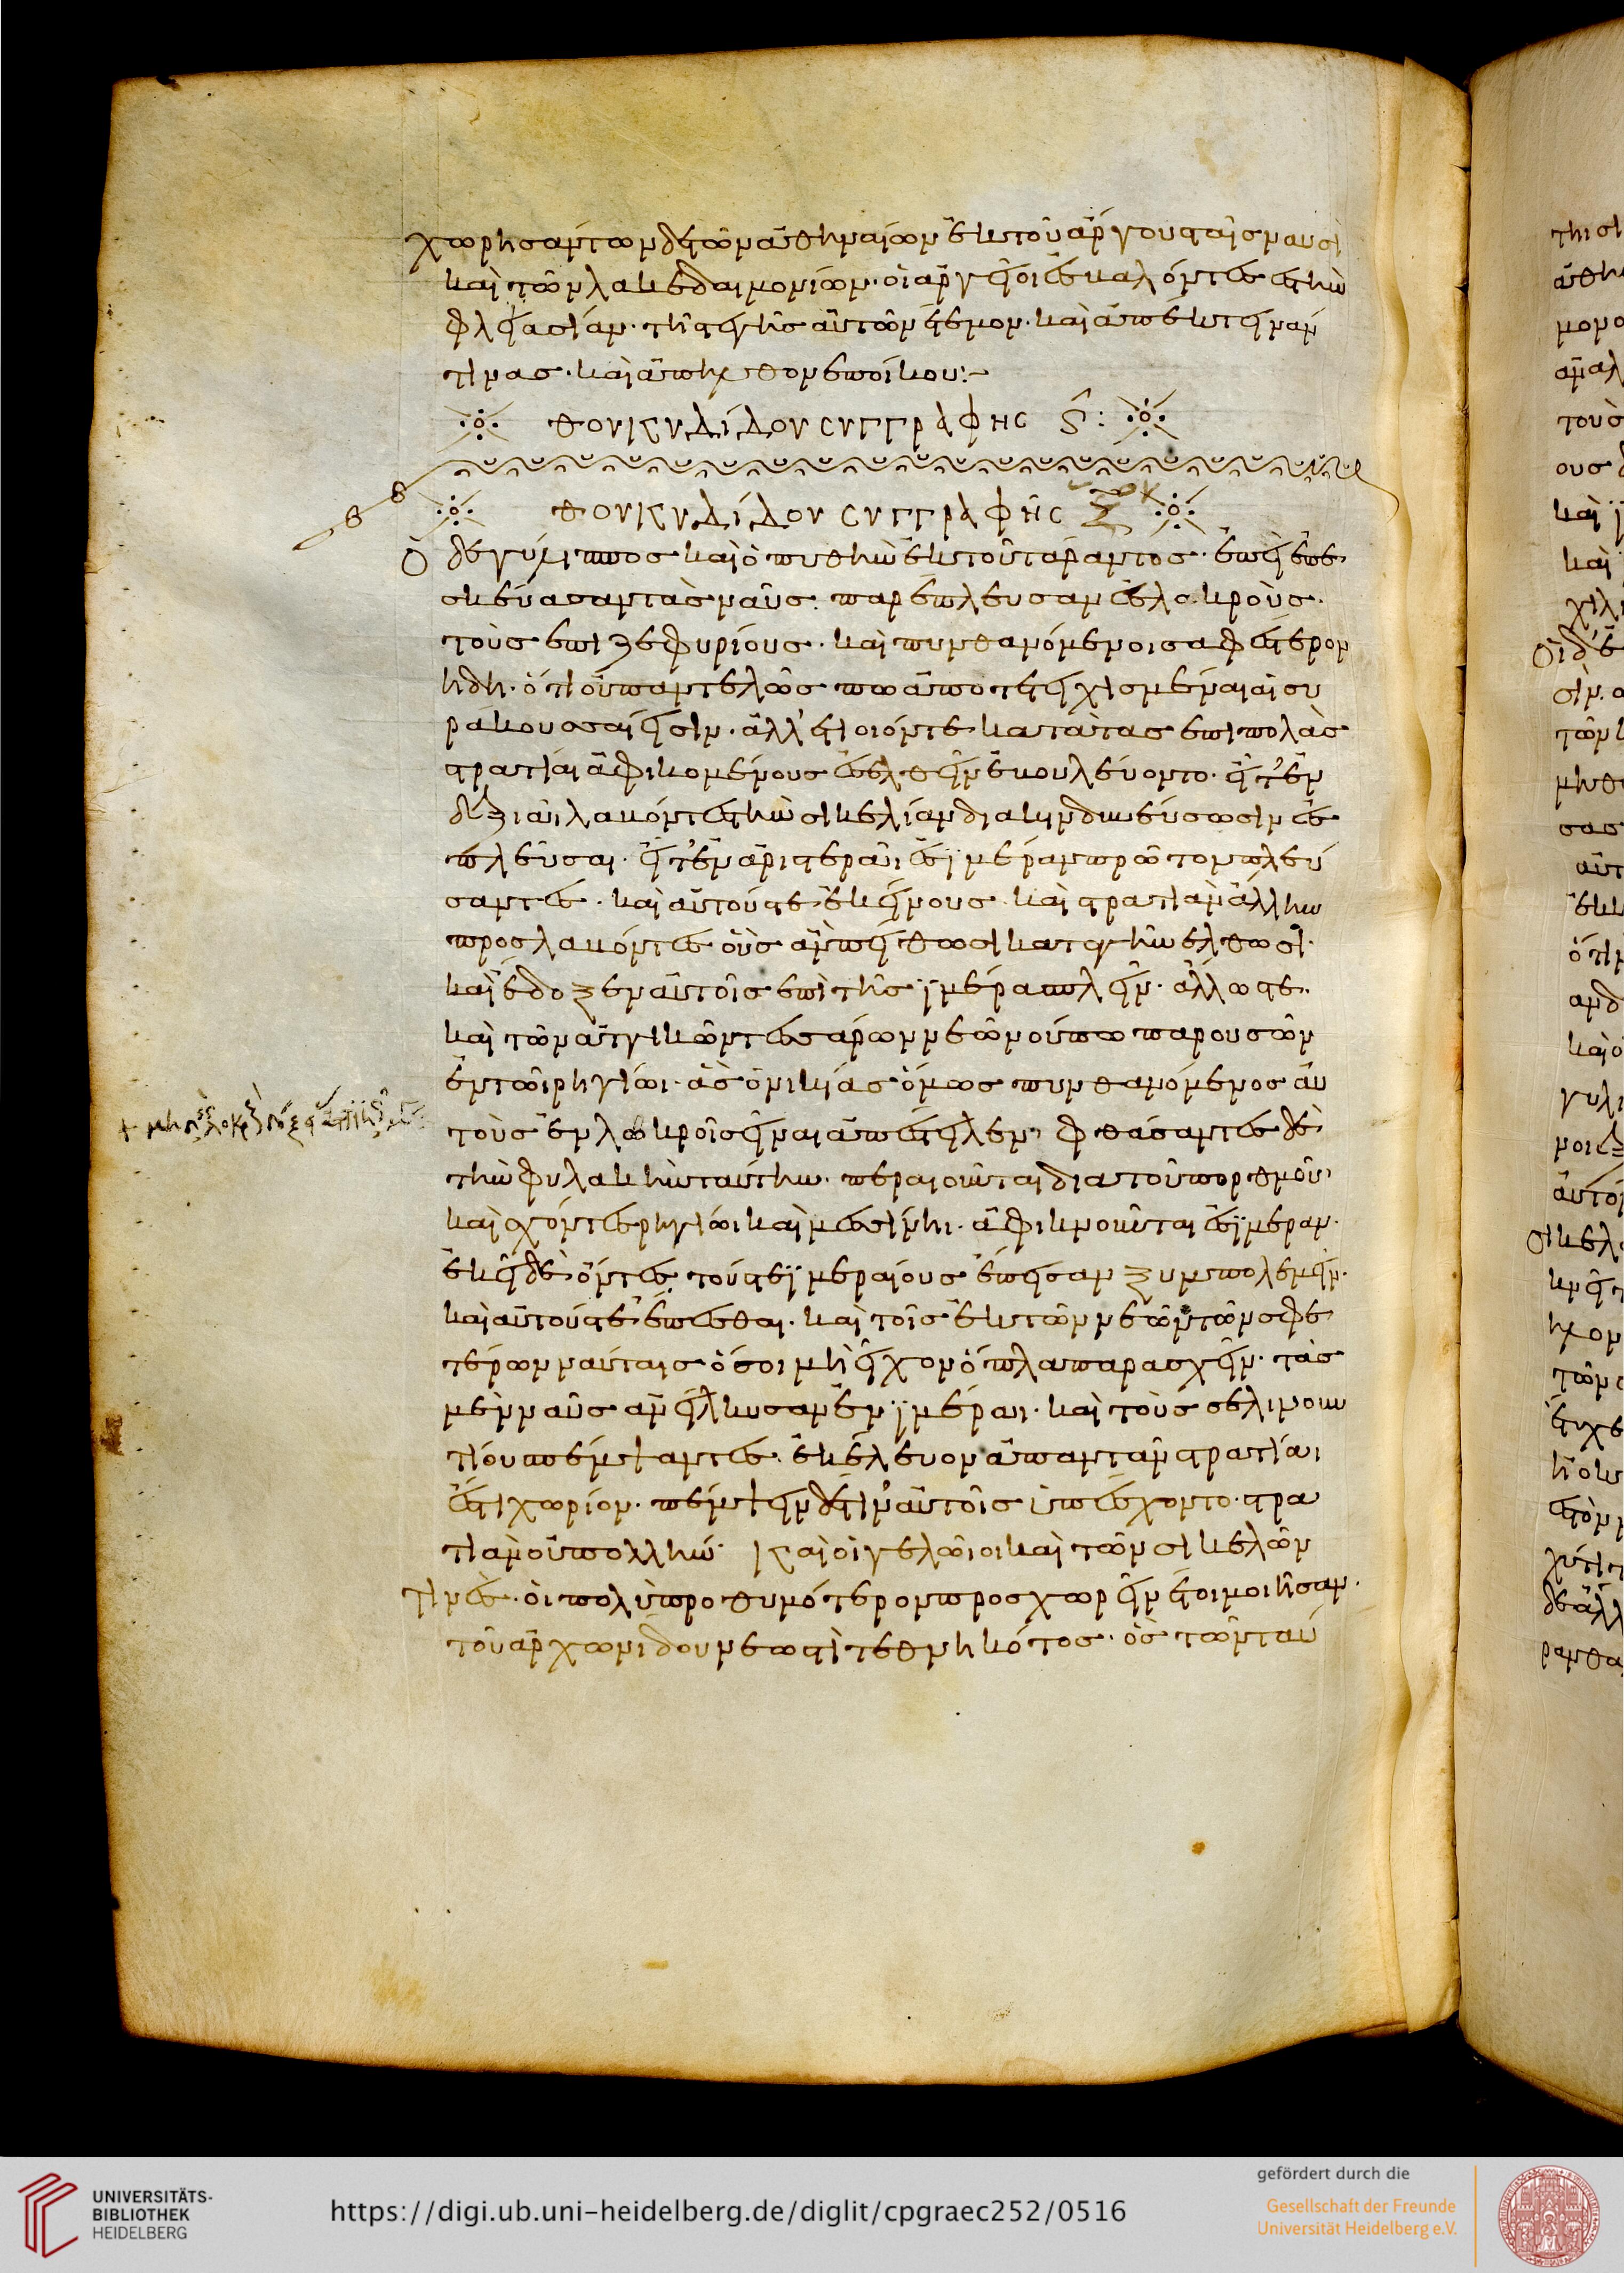 χωρησάντων δὲ τῶν ἀθηναίων ἐκ τοῦ ἄργους ταῖς ναυσὶ
καὶ τῶν λακεδαιμονίων· οἱ ἀργεῖοι ἐσβαλόντες ἐς τὴν
φλειασίαν· τῆς τε γῆς αὐτῶν ἔτεμον· καὶ ἀπέκτειναν
τινας· καὶ ἀπῆλθον ἐπ οἴκου:-
θουκυδίδου συγγραφῆς ς:
θουκυδίδου συγγραφῆς Ζ
Ὁ δὲ γύλιππος καὶ ὁ πυθὴν ἐκ τοῦ τάραντος· ἐπεὶ ἐπε
σκεύασαν τὰς ναῦς· παρέπλευσαν ἐς λοκροὺς
τοὺς ἐπιζεφυρίους· καὶ πυνθανόμενοι σαφέστερον
ἤδη· ὅτι οὐ παντελῶς πω ἀποτετειχισμέναι αἱ συ
ράκουσσαι εἰσὶν· ἀλλ' ἔτι οἷόν τε κατὰ τὰς ἐπιπολὰς
στρατιᾶι ἀφικομένους ἐσελθεῖν ἐβουλεύοντο· εἴτ' ἐν
δεξιᾶι λαβόντες τὴν σικελίαν διακινδυνεύσωσιν ἐσ
πλεῦσαι· εἴτ' ἐν ἀριστερᾶι ἐς ἱμέραν πρῶτον πλεύ
σαντες· καὶ αὐτούς τε ἐκείνους καὶ στρατιὰν ἄλλην
προσλαβόντες οὓς ἂν πείθωσι κατὰ γῆν ἔλθωσι·
καὶ ἔδοξεν αὐτοῖς ἐπὶ τῆς ἱμέρας πλεῖν· ἄλλως τε
καὶ τῶν ἀττικῶν τεσσάρων νεῶν οὔπω παρουσῶν
ἐν τῶι ῥηγίωι· ἃς ὁ νικίας ὅμως πυνθανόμενος αὐ
τοὺς ἐν λοκροῖς εἶναι ἀπέστειλεν· φθάσαντες δὲ
τὴν φυλακὴν ταύτην· περαιοῦνται διὰ τοῦ πορθμοῦ·
καὶ σχόντες ῥηγίωι καὶ μεσσήνηι· ἀφικνοῦνται ἐς ἱμέραν·
ἐκεῖ δὲ ὄντες τούς τε ἱμεραίους ἔπεισαν ξυμπολεμεῖν·
καὶ αὐτούς τε ἕπεσθαι· καὶ τοῖς ἐκ τῶν νεῶν τῶν σφε
τέρων ναύταις ὅσοι μὴ εἶχον ὅπλα παρασχεῖν· τὰς
μὲν ναῦς ἀνείλκυσαν ἐν ἱμέραι· καὶ τοὺς σελινουν
τίους πέμψαντες· ἐκέλευον ἀπαντᾶν στρατιᾶι
ἔς τι χωρίον· πέμψειν δέ τιν' αὐτοῖς ὑπέσχοντο στρα
τιὰν οὐ πολλὴν· καὶ οἱ γελῶιοι καὶ τῶν σικελῶν
τινές· οἳ πολὺ προθυμότερον προσχωρεῖν ἕτοιμοι ἦσαν·
τοῦ ἀρχωνίδου νεωστὶ τεθνηκότος· ὃς τῶν ταύ
UNIVERSITÄTS-
BIBLIOTHEK
HEIDELBERG
https://digi.ub.uni-heidelberg.de/diglit/cpgraec252/0516
gefördert durch die
Gesellschaft der Freunde
Universität Heidelberg e.V.